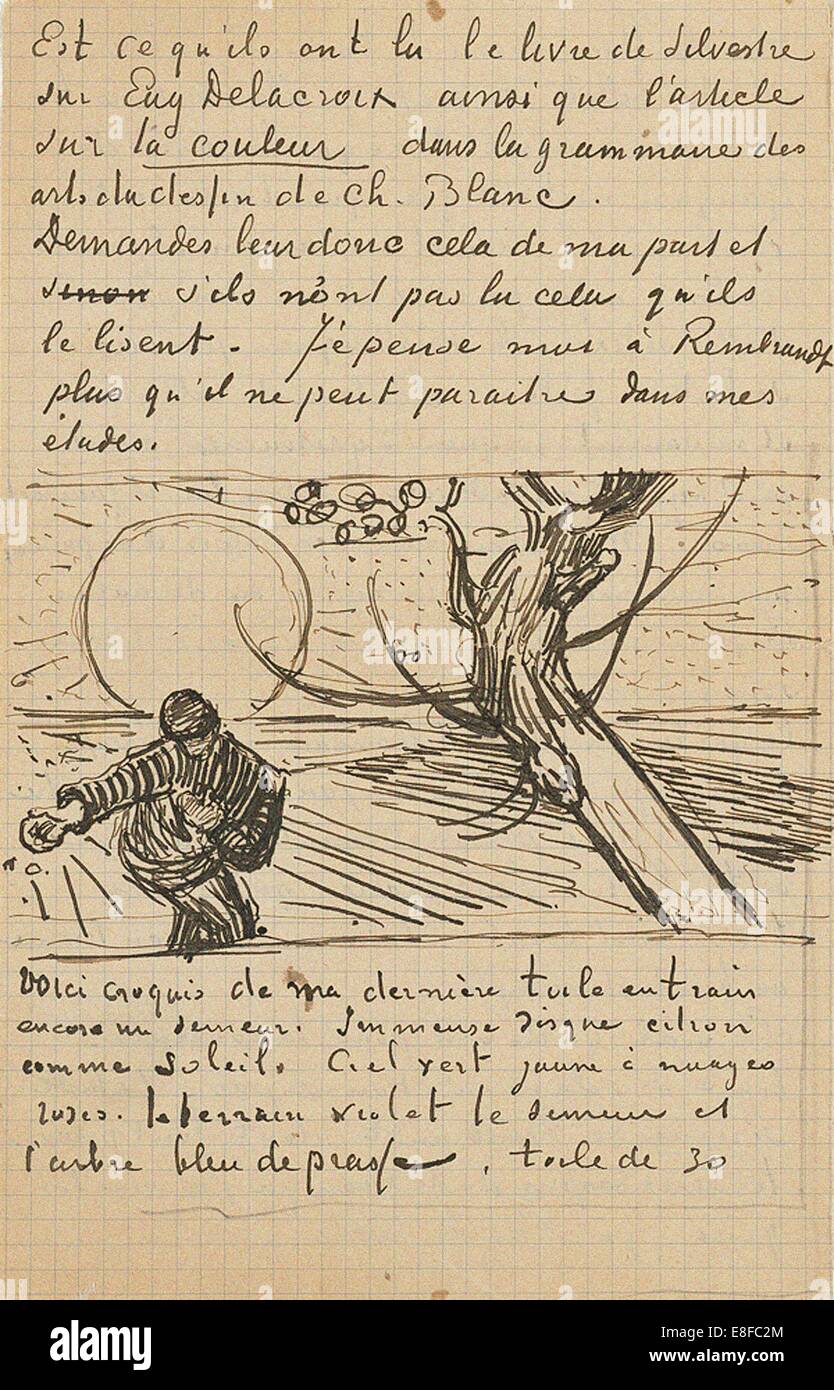 Est ce qu'ils ont lu le livre de Silvestre
sur Eug Delacroix ainsi que l'article
sur la couleur dans la grammaire des
arts du dessin de Ch. Blanc.
Demandes leur donc cela de ma part et
sinon s'ils n'ont pas lu cela qu'ils
le lisent. J'e pense moi à Rembrandt
plus qu'il ne peut paraitre dans mes
études.
Voici croquis de ma dernière toile en train
encore un semeur. Immense disque citron
comme soleil. Ciel vert jaune à nuages
roses. le terrain violet le semeur et
l'arbre bleu de prusse. toile de 30
alamy
Image ID: E8FC2M
www.alamy.com